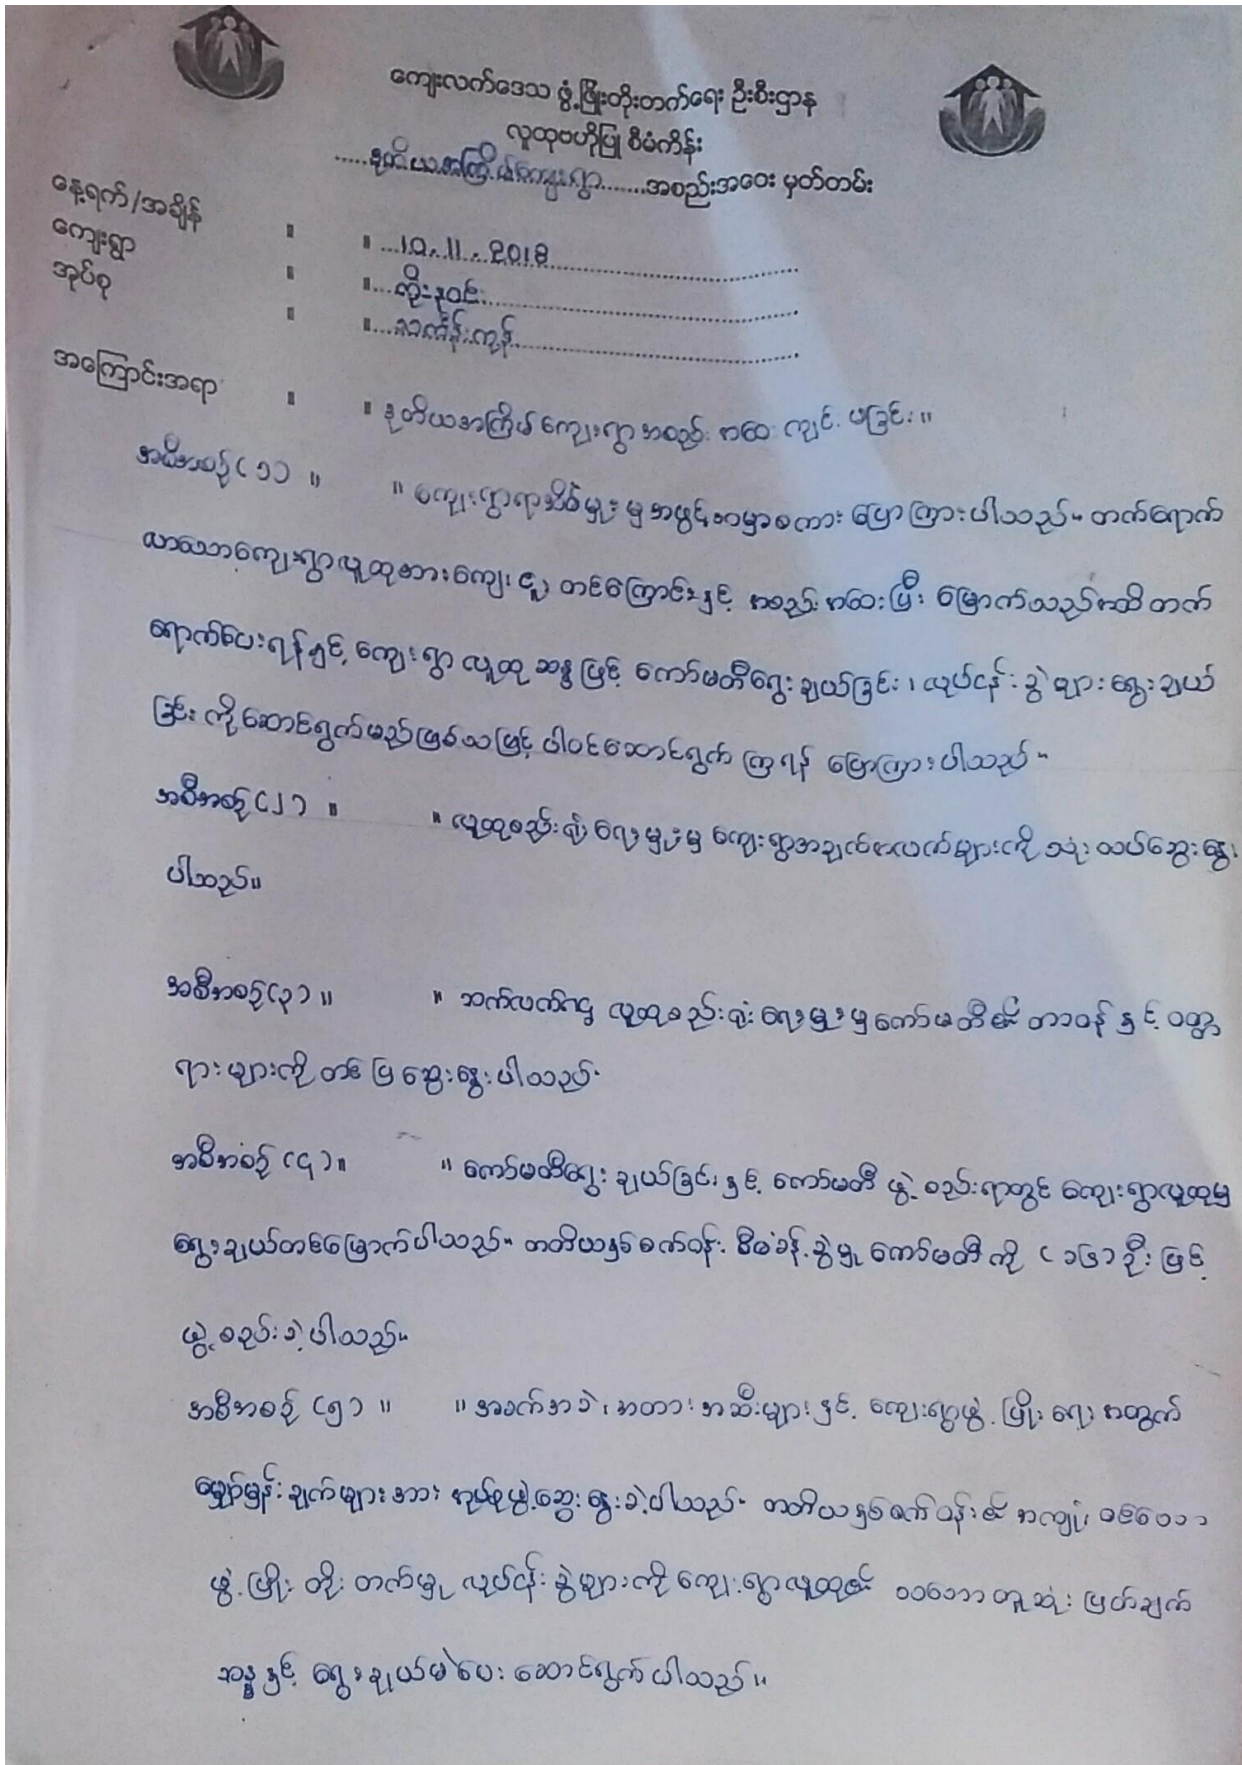 ကျေးလက်ဒေသ ဖွံ့ဖြိုးတိုးတက်ရေး ဦးစီးဌာန
လူထုဗဟိုပြု စီမံကိန်း
.....ဒုတိယအကြိမ်ကျေးရွာ.......အစည်းအဝေး မှတ်တမ်း
နေ့ရက်/အချိန် ။ ။...10.11.2018
ကျေးရွာ ။ ။...တိုးနဝင်း
အုပ်စု ။ ။...သင်္ကန်းကုန်
အကြောင်းအရာ ။ ။ ဒုတိယအကြိမ် ကျေးရွာ အစည်းအဝေး ကျင်းပခြင်း။
အစီအစဉ်(၁) ။ ။ ကျေးရွာရာအိမ်မှူးမှ အဖွင့်အမှာစကား ပြောကြားပါသည်။ တက်ရောက်
လာသောကျေးရွာလူထုအားကျေးဇူးတင်ကြောင်းနှင့် အစည်းအဝေးပြီးမြောက်သည်အထိ တက်
ရောက်ပေးရန်နှင့် ကျေးရွာ လူထု ဆန္ဒဖြင့် ကော်မတီရွေးချယ်ခြင်း၊ လုပ်ငန်းခွဲများ ရွေးချယ်
ခြင်းကို ဆောင်ရွက်မည်ဖြစ်သဖြင့် ပါဝင်ဆောင်ရွက်ကြရန် ပြောကြားပါသည်။
အစီအစဉ်(၂) ။ ။ လူထုစည်းရုံးရေးမှူးမှ ကျေးရွာအချက်အလက်များကို သုံးသပ်ဆွေးနွေး
ပါသည်။
အစီအစဉ်(၃) ။ ။ ဆက်လက်၍ လူထုစည်းရုံးရေးမှူးမှ ကော်မတီ၏ တာဝန်နှင့် ဝတ္တ
ရားများကို တင်ပြဆွေးနွေးပါသည်။
အစီအစဉ်(၄)။ ။ ကော်မတီရွေးချယ်ခြင်းနှင့် ကော်မတီ ဖွဲ့စည်းရာတွင် ကျေးရွာလူထုမှ
ရွေးချယ်တင်မြှောက်ပါသည်။ တတိယနှစ်စက်ဝန်း စီမံခန့်ခွဲမှု ကော်မတီကို (၁၆)ဦးဖြင့်
ဖွဲ့စည်းခဲ့ပါသည်။
အစီအစဉ် (၅) ။ ။ အခက်အခဲ၊ အတားအဆီးများနှင့် ကျေးရွာဖွံ့ဖြိုးရေးအတွက်
မျှော်မှန်းချက်များအား အုပ်စုဖွဲ့ဆွေးနွေးခဲ့ပါသည်။ တတိယနှစ်စက်ဝန်း၏ အကျုံးဝင်သော
ဖွံ့ဖြိုးတိုးတက်မှု လုပ်ငန်းခွဲများကို ကျေးရွာလူထု၏ သဘောတူဆုံးဖြတ်ချက်
ဆန္ဒနှင့် ရွေးချယ်မဲပေး ဆောင်ရွက်ပါသည်။